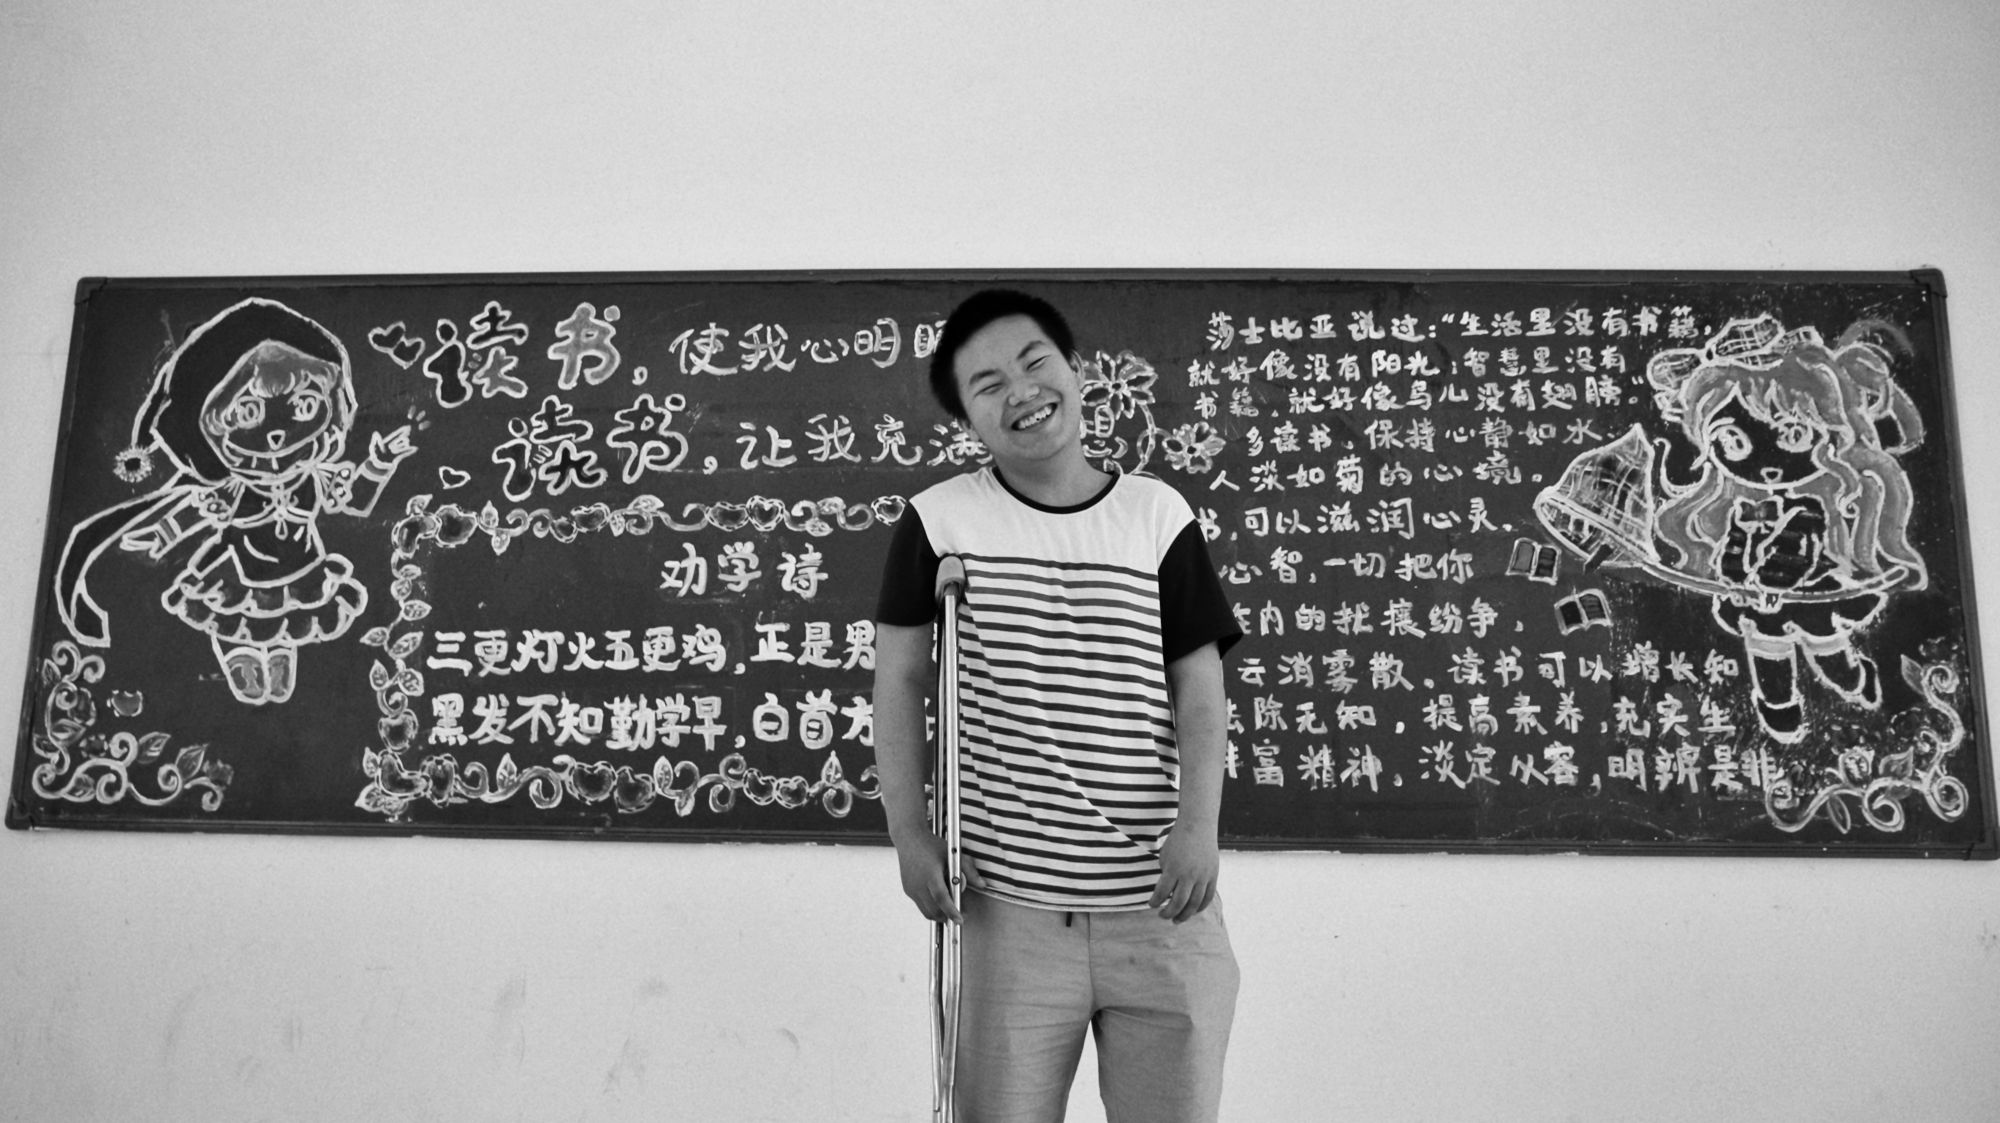 读书,使我心明
读书,让我充满 想
劝学诗
三更灯火五更鸡,正是男
黑发不知勤学早,白首方
莎士比亚说过:“生活里没有书籍,
就好像没有阳光;智慧里没有
书籍,就好像鸟儿没有翅膀。”
多读书,保持心静如水、
人淡如菊的心境。
书,可以滋润心灵。
心智,一切把你
内的扰攘纷争,
云消雾散。读书可以增长知
除无知,提高素养,充实生
富精神,淡定从容,明辨是非